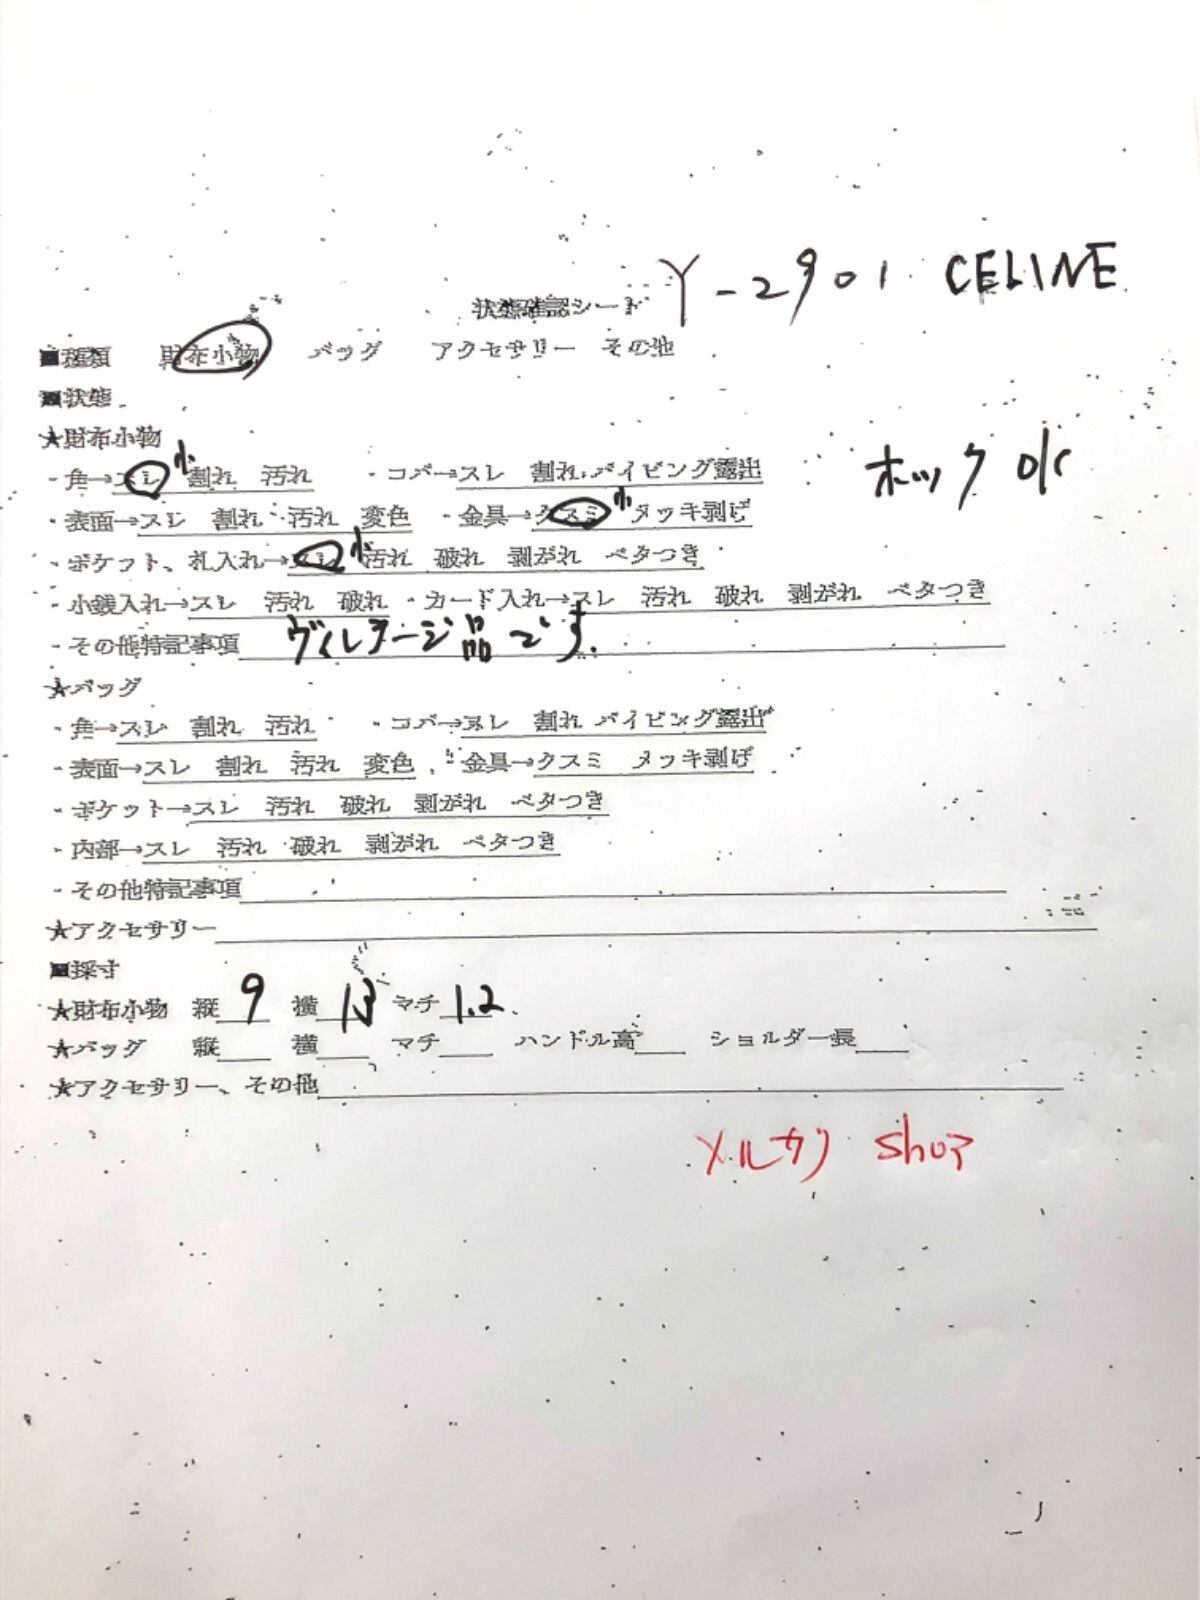 Y-2901 CELINE
状態確認シート
■種類 財布小物 バッグ アクセサリー その他
■状態
★財布小物
・角→スレ 小 割れ 汚れ ・コバ→スレ 割れ パイピング露出
ホック ok
・表面→スレ 割れ 汚れ 変色 ・金具→クスミ 小 メッキ剥げ
・ポケット、札入れ→スレ 小 汚れ 破れ 剥がれ ベタつき
・小銭入れ→スレ 汚れ 破れ ・カード入れ→スレ 汚れ 破れ 剥がれ ベタつき
・その他特記事項 ヴィンテージ品です.
★バッグ
・角→スレ 割れ 汚れ ・コバ→スレ 割れ パイピング露出
・表面→スレ 割れ 汚れ 変色 ・金具→クスミ メッキ剥げ
・ポケット→スレ 汚れ 破れ 剥がれ ベタつき
・内部→スレ 汚れ 破れ 剥がれ ベタつき
・その他特記事項
★アクセサリー
■採寸
★財布小物 縦 9 横 13 マチ 1.2
★バッグ 縦 横 マチ ハンドル高 ショルダー長
★アクセサリー、その他
メルカリ shop